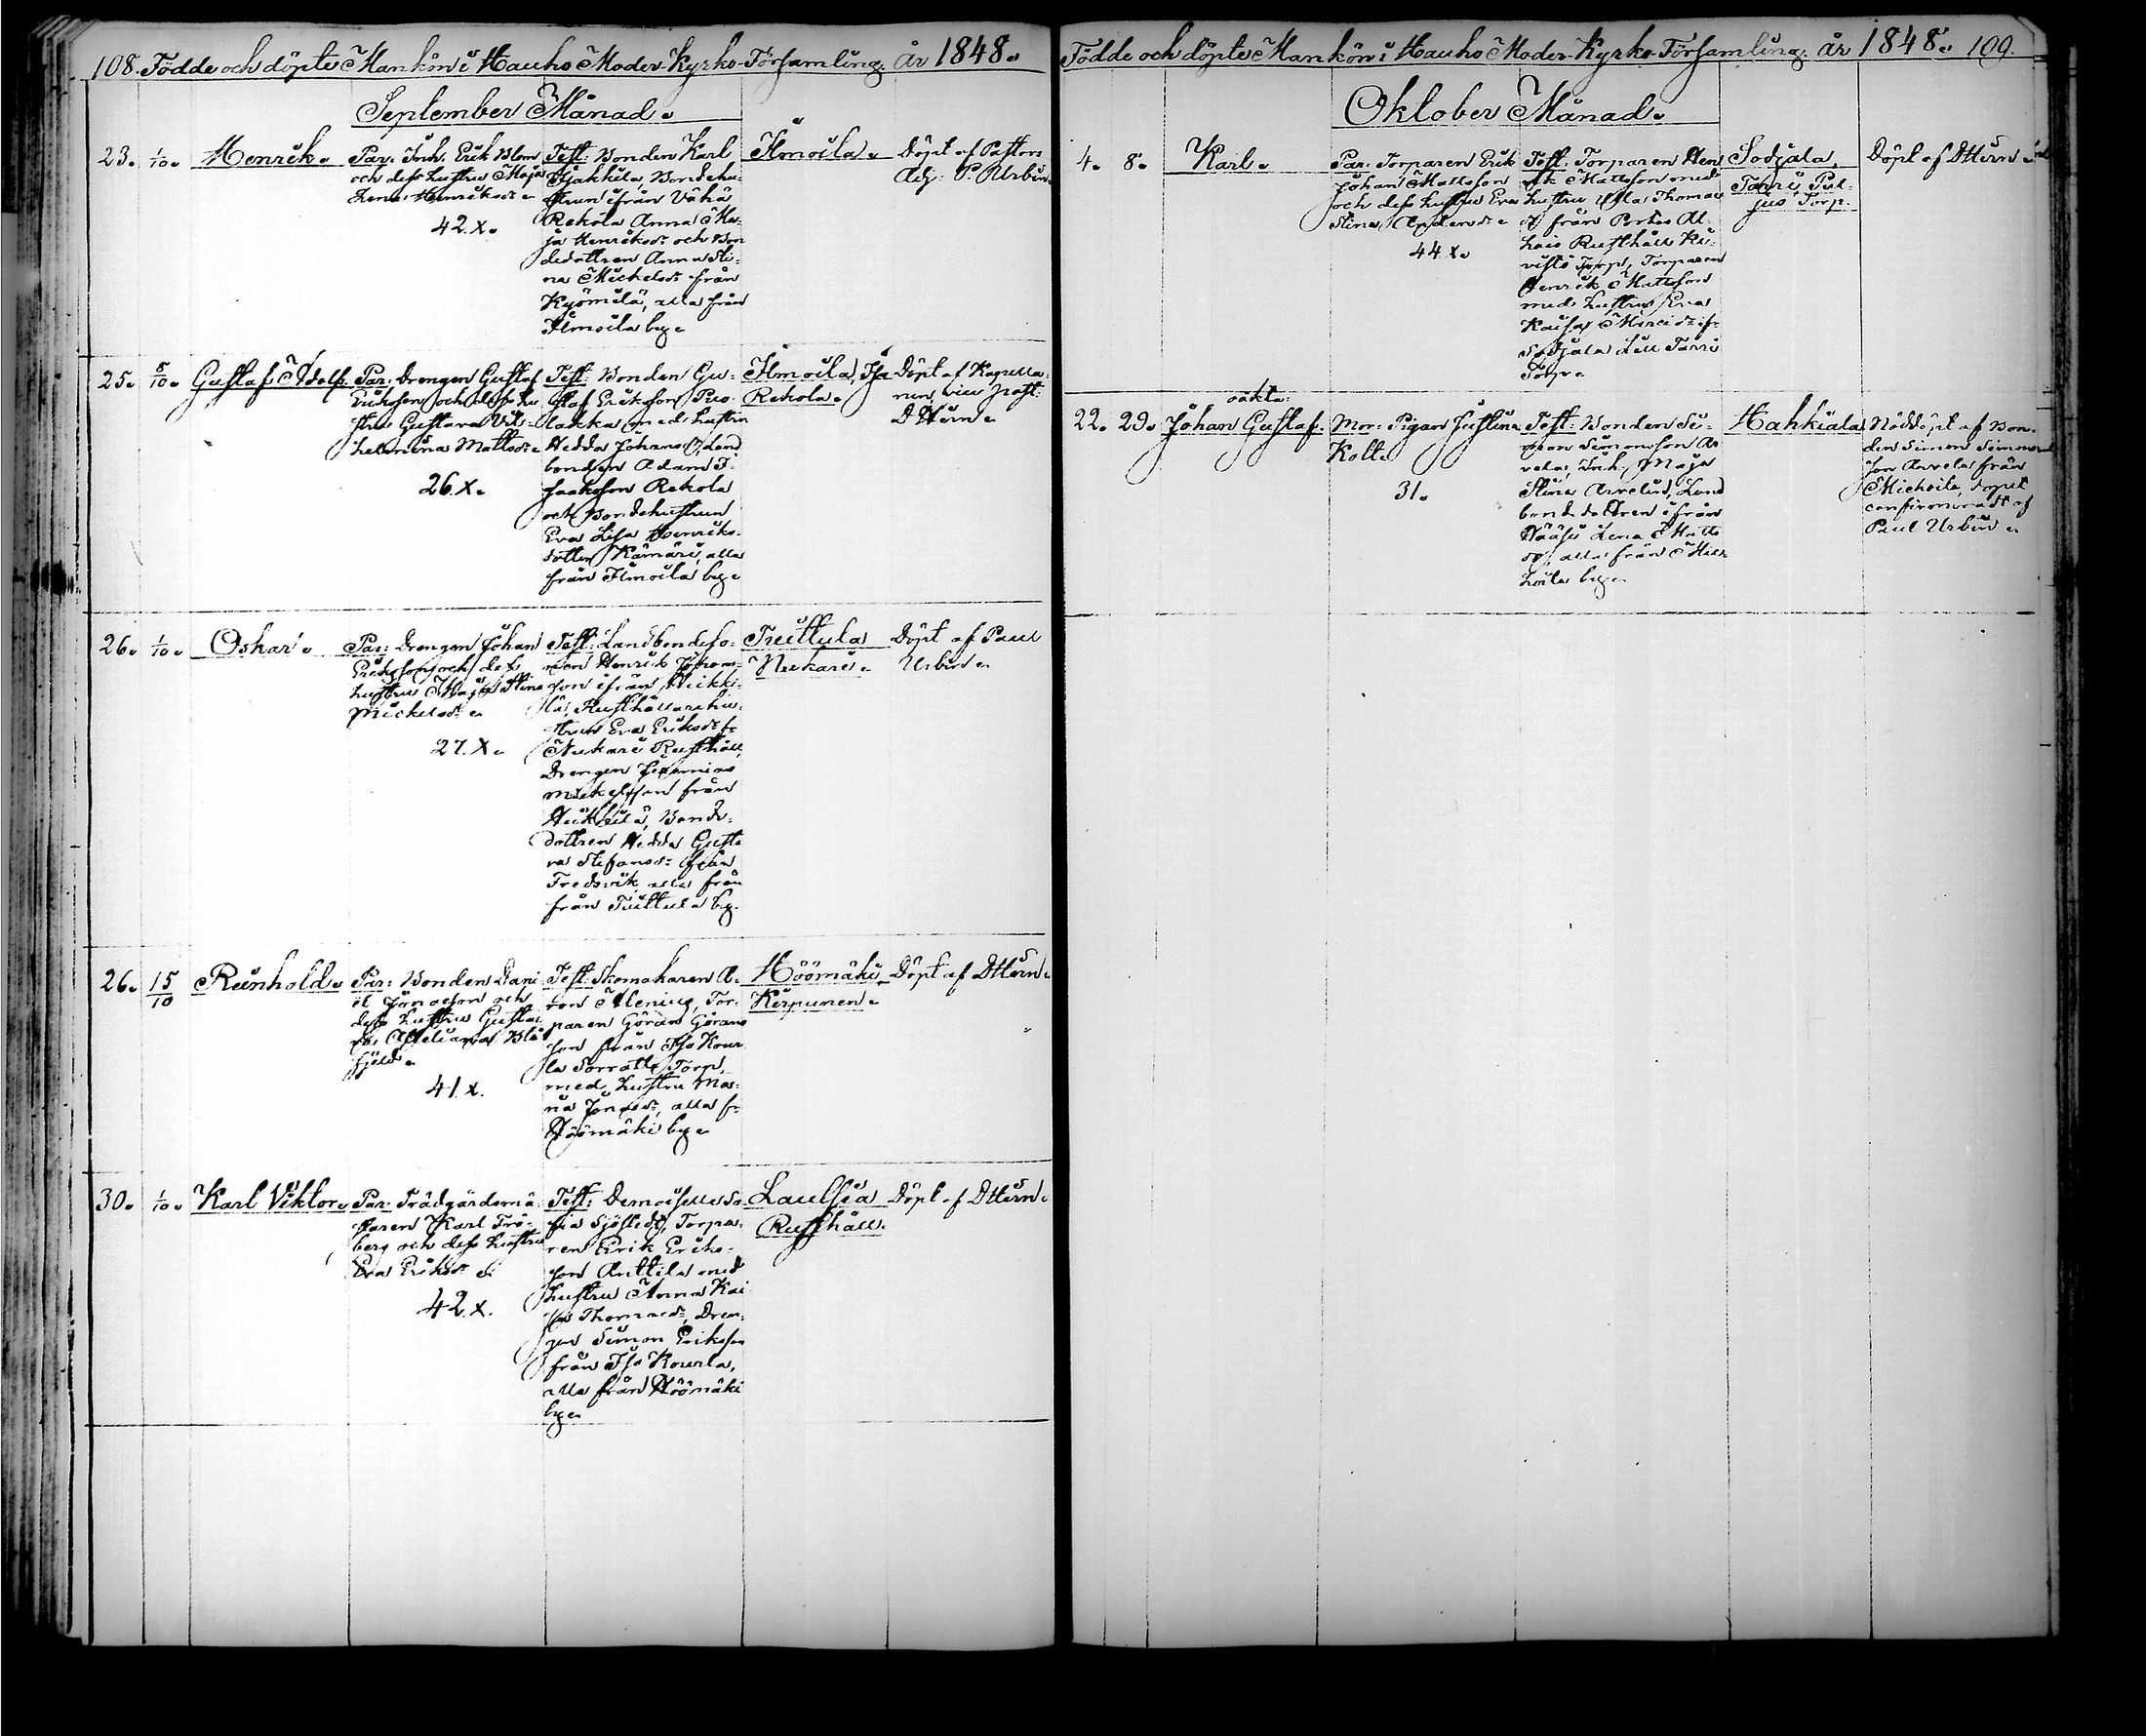 108. Födde och döpte Mankön i Hauho Moder-Kyrko-Församling. år 1848.
September Månad.
23. 1/10. Henrik.
Par: Inh. Erik Blom
och dess hustru Maja
Lena Henriksdr.
42.X.
Test: Bonden Karl
Jakkila, Bondehu-
strun ifrån Vähä
Rekola Anna Ma-
ja Henriksdr och Bon
dedottren Anna Sti-
na Michelsdr från
Kyömilä, alla från
Ilmoila by.
Ilmoila.
Döpt af Pastors
Adj. P. Urbin.
25. 8/10. Gustaf Adolf.
Par: Drengen Gustaf
Erikson och dess hu
stru Gustava Vil-
helmina Mattsdr.
26.X.
Test: Bonden Gu-
staf Erikson Puo-
lakka med hustru
Hedda Johansdr, Land
bonden Adam I-
saakson Rekola
och Bondehustrun
Eva Lisa Henriks-
dotter Kämäri, alla
från Ilmoila by.
Ilmoila, Iso
Rekola.
Döpt af Kapella-
nen, vice past:
D Hurn.
26. 1/10. Oskar.
Par: Drengen Johan
Erikson och dess
hustru Maja Stina
Mickelsdr.
27.X.
Test: Landbondeso-
nen Henrik Johans-
son ifrån Heikki-
lä, Rusthållarehu-
strun Eva Eriksdr fr.
Nukari Rusthåll,
Drengen Jeremias
Mickelsson från
Heikkilä, Bonde-
dottren Hedda Gusta
va Stefansdr från
Fredsvik, alla från
från Tuittula by.
Tuittula
Nukari.
Döpt af Paul
Urbin.
26. 15/10 Reinhold.
Par: Bonden Dani
el Jönsson och
dess hustru Gusta-
va Blå
fjeld.
41.X.
Test: Skomakaren A-
ron Alenius, Tor-
paren Göran Görans
son från Iso Kour
la Torp,
med hustru Ma-
ria Jönsdr, alla fr.
Höömäki by.
Höömäki
Kirpunen.
Döpt af D Hurn.
30. 1/10. Karl Viktor.
Par: Trädgårdsmä-
staren Karl Frö-
berg och dess hustru
Eva Eriksdr
42.X.
Test: Demoiselle So
fia Sjöstedt, Torpa-
ren Erik Eriks-
son Anttila med
hustru Anna Kai
sa Thomasdr, Dren-
gen Simon Erikson
från Iso Kourla,
alla från Höömäki
by.
Lautsia
Rusthåll.
Döpt af D Hurn.
Födde och döpte Mankön i Hauho Moder-Kyrko-Församling. år 1848. 109.
Oktober Månad.
4. 8. Karl.
Par: Torparen Erik
Johan Mattsson
och dess hustru Eva
Stina
44.X.
Test: Torparen Hen
rik Mattsson med
hustru Ulla Thomas
dr från Portas Al-
hais Rusthålls Ki-
visto Torp, Torparen
Henrik Mattsson
med hustru Eva
Kaisa ifr.
Sodjala Lill Tarri
Torp.
Sodjala,
Tarri Pil-
jus Torp.
Döpt af D Hurn.
22. 29. oäkta: Johan Gustaf.
Mor: Pigan Justina
Kolt.
31.
Test: Bonden Si-
mon Simonsson Ar
vela, Inh: Maja
Stina Arvelin, Land
bondedottren ifrån
Hääsi Lena Matts
dr, alla från Miek
hoila by.
Hahkiala
Nöddöpt af Bon-
den Simon Simons
son Arvela från
Miehoila, dopet
confirmeradt af
Paul Urbin.